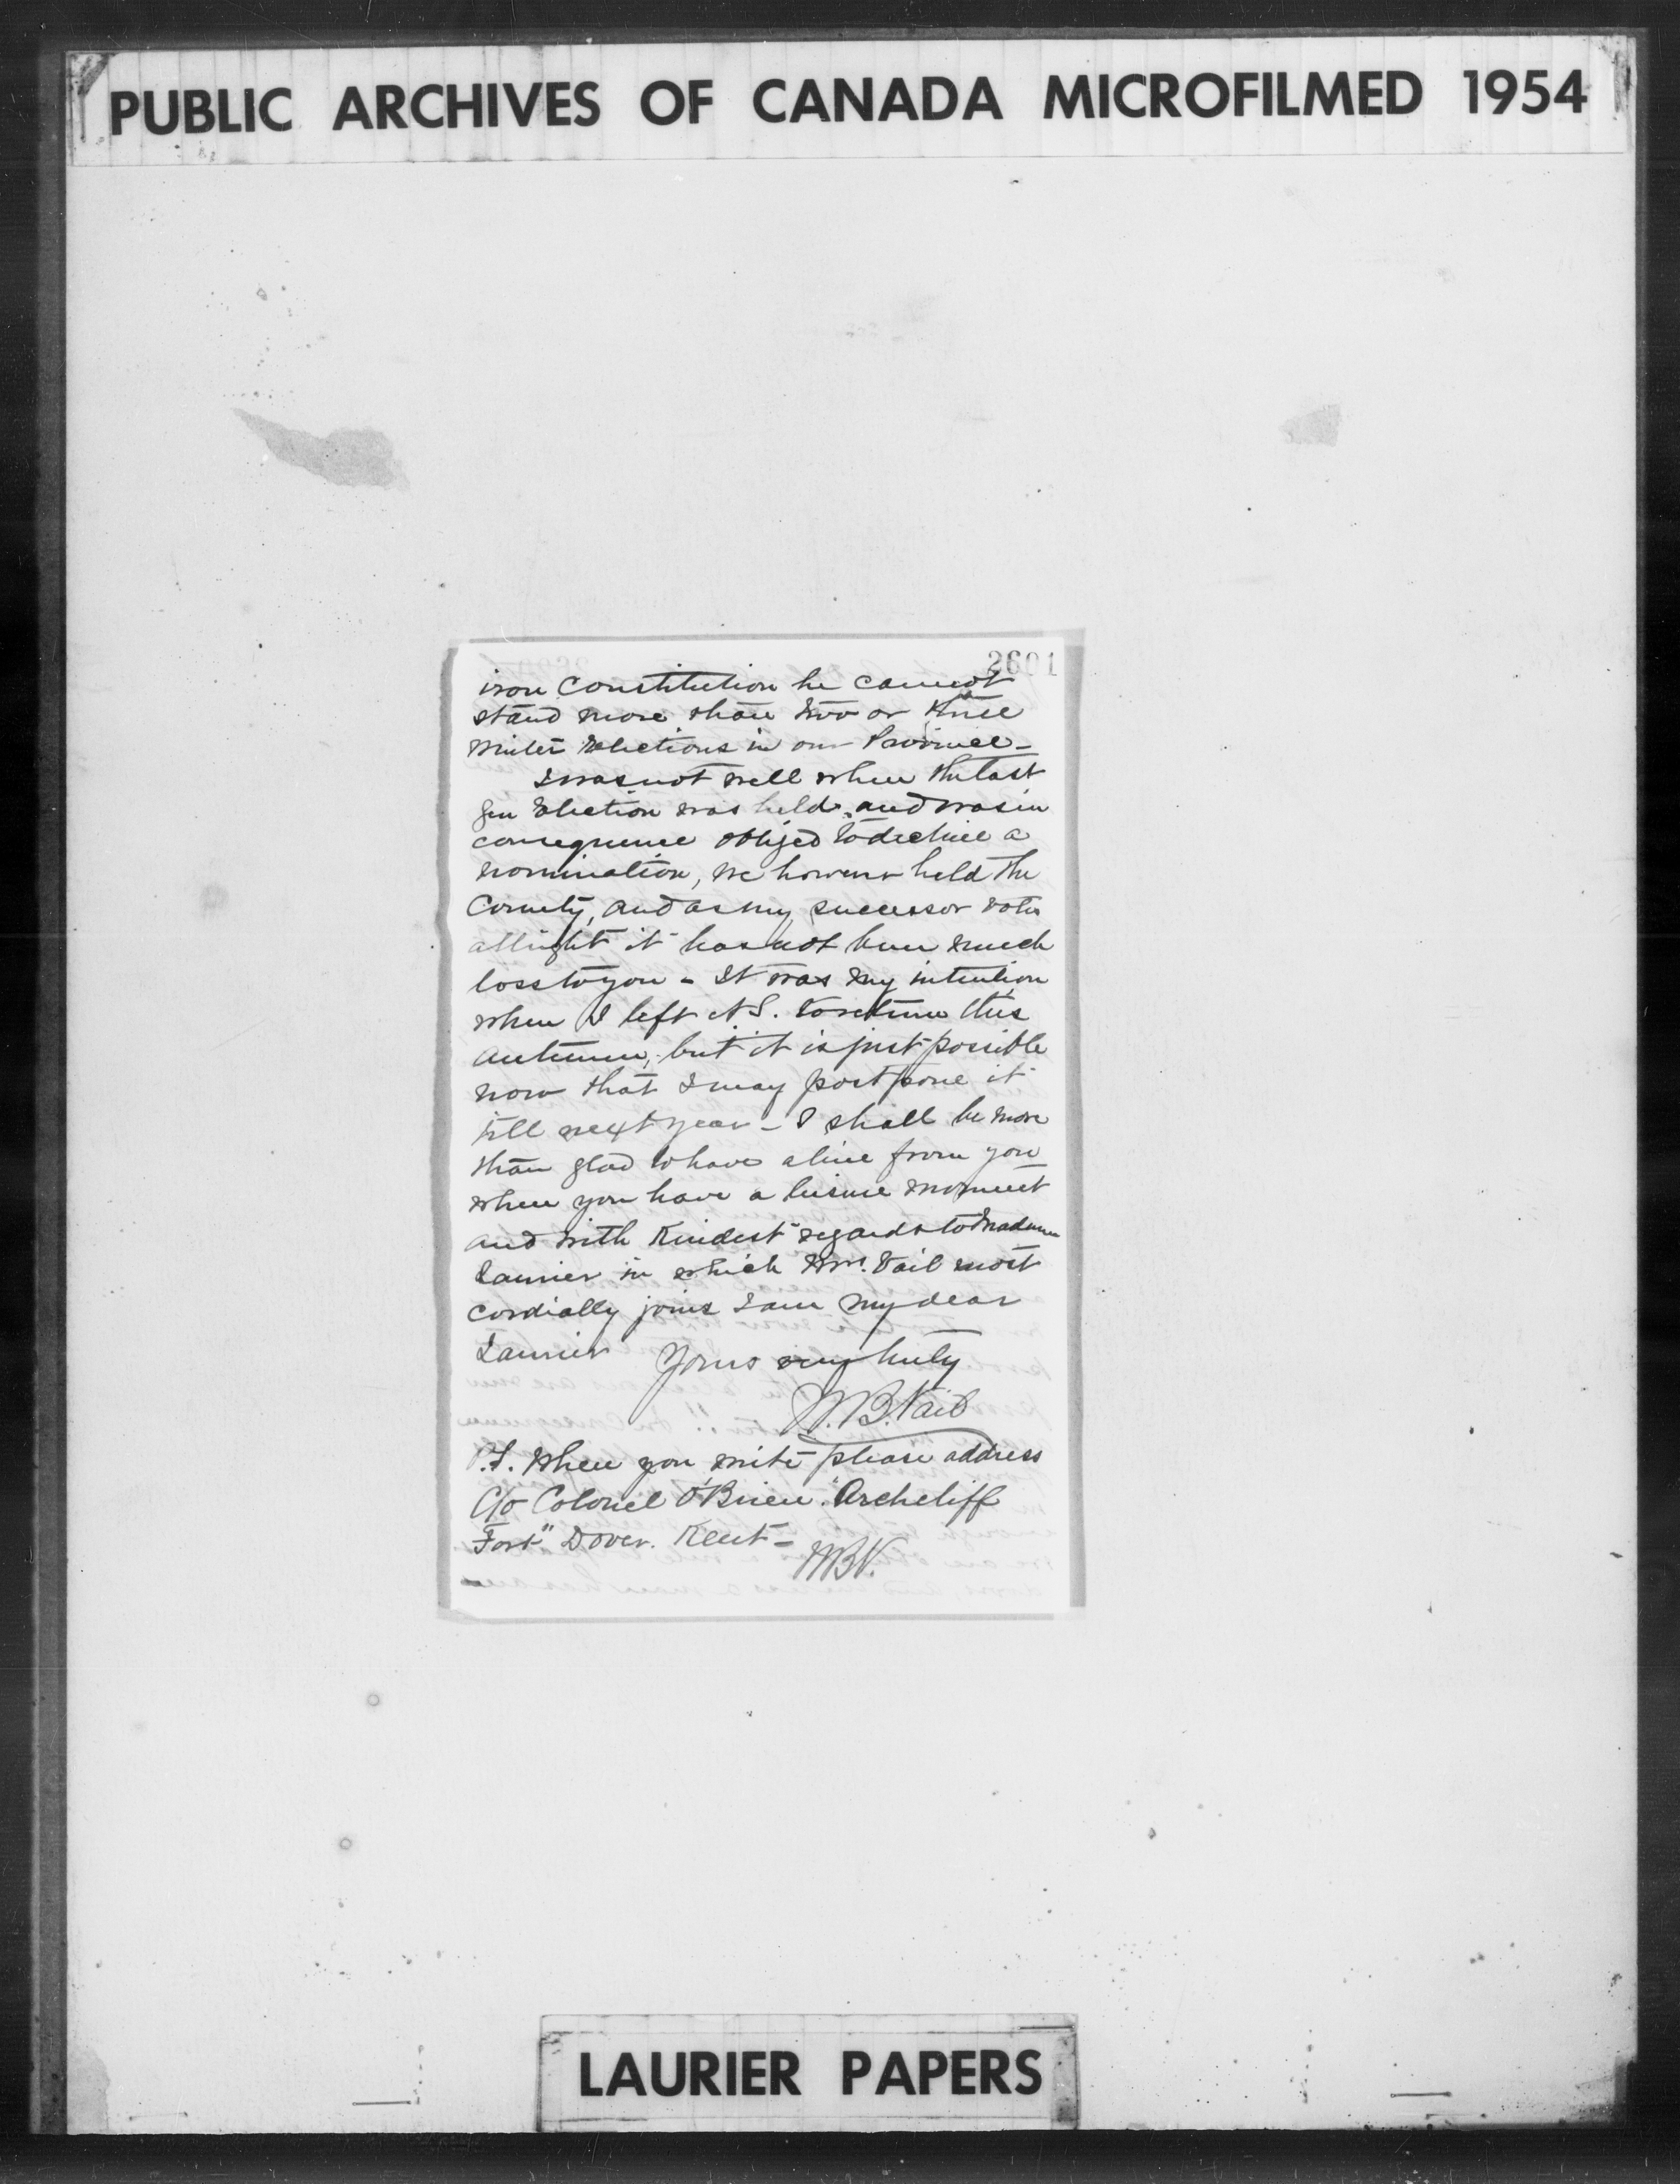 PUBLIC ARCHIVES OF CANADA MICROFILMED 1954
2601
iron Constitution he cannot
stand more than two or three
Winter Elections in our Province_
I was not well when the last
Gen Election was held, and was in
consequence obliged to decline a
nomination, we however held the
County, and as my successor votes
allright it has not been much
loss to you - It was my intention
when I left N S. to return this
Autumn, but it is just possible
now that I may postpone it
till next year - I shall be more
than glad to have a line from you
when you have a leisure moment
and with Kindest regards to Madame
Laurier in which Mrs. Vail most
cordially joins I am my dear
Laurier Yours very truly
W. B. Vail
P.S. When you write please address
C/o Colonel O'Brien "Archcliff
Fort" Dover. Kent -
WBV.
LAURIER PAPERS